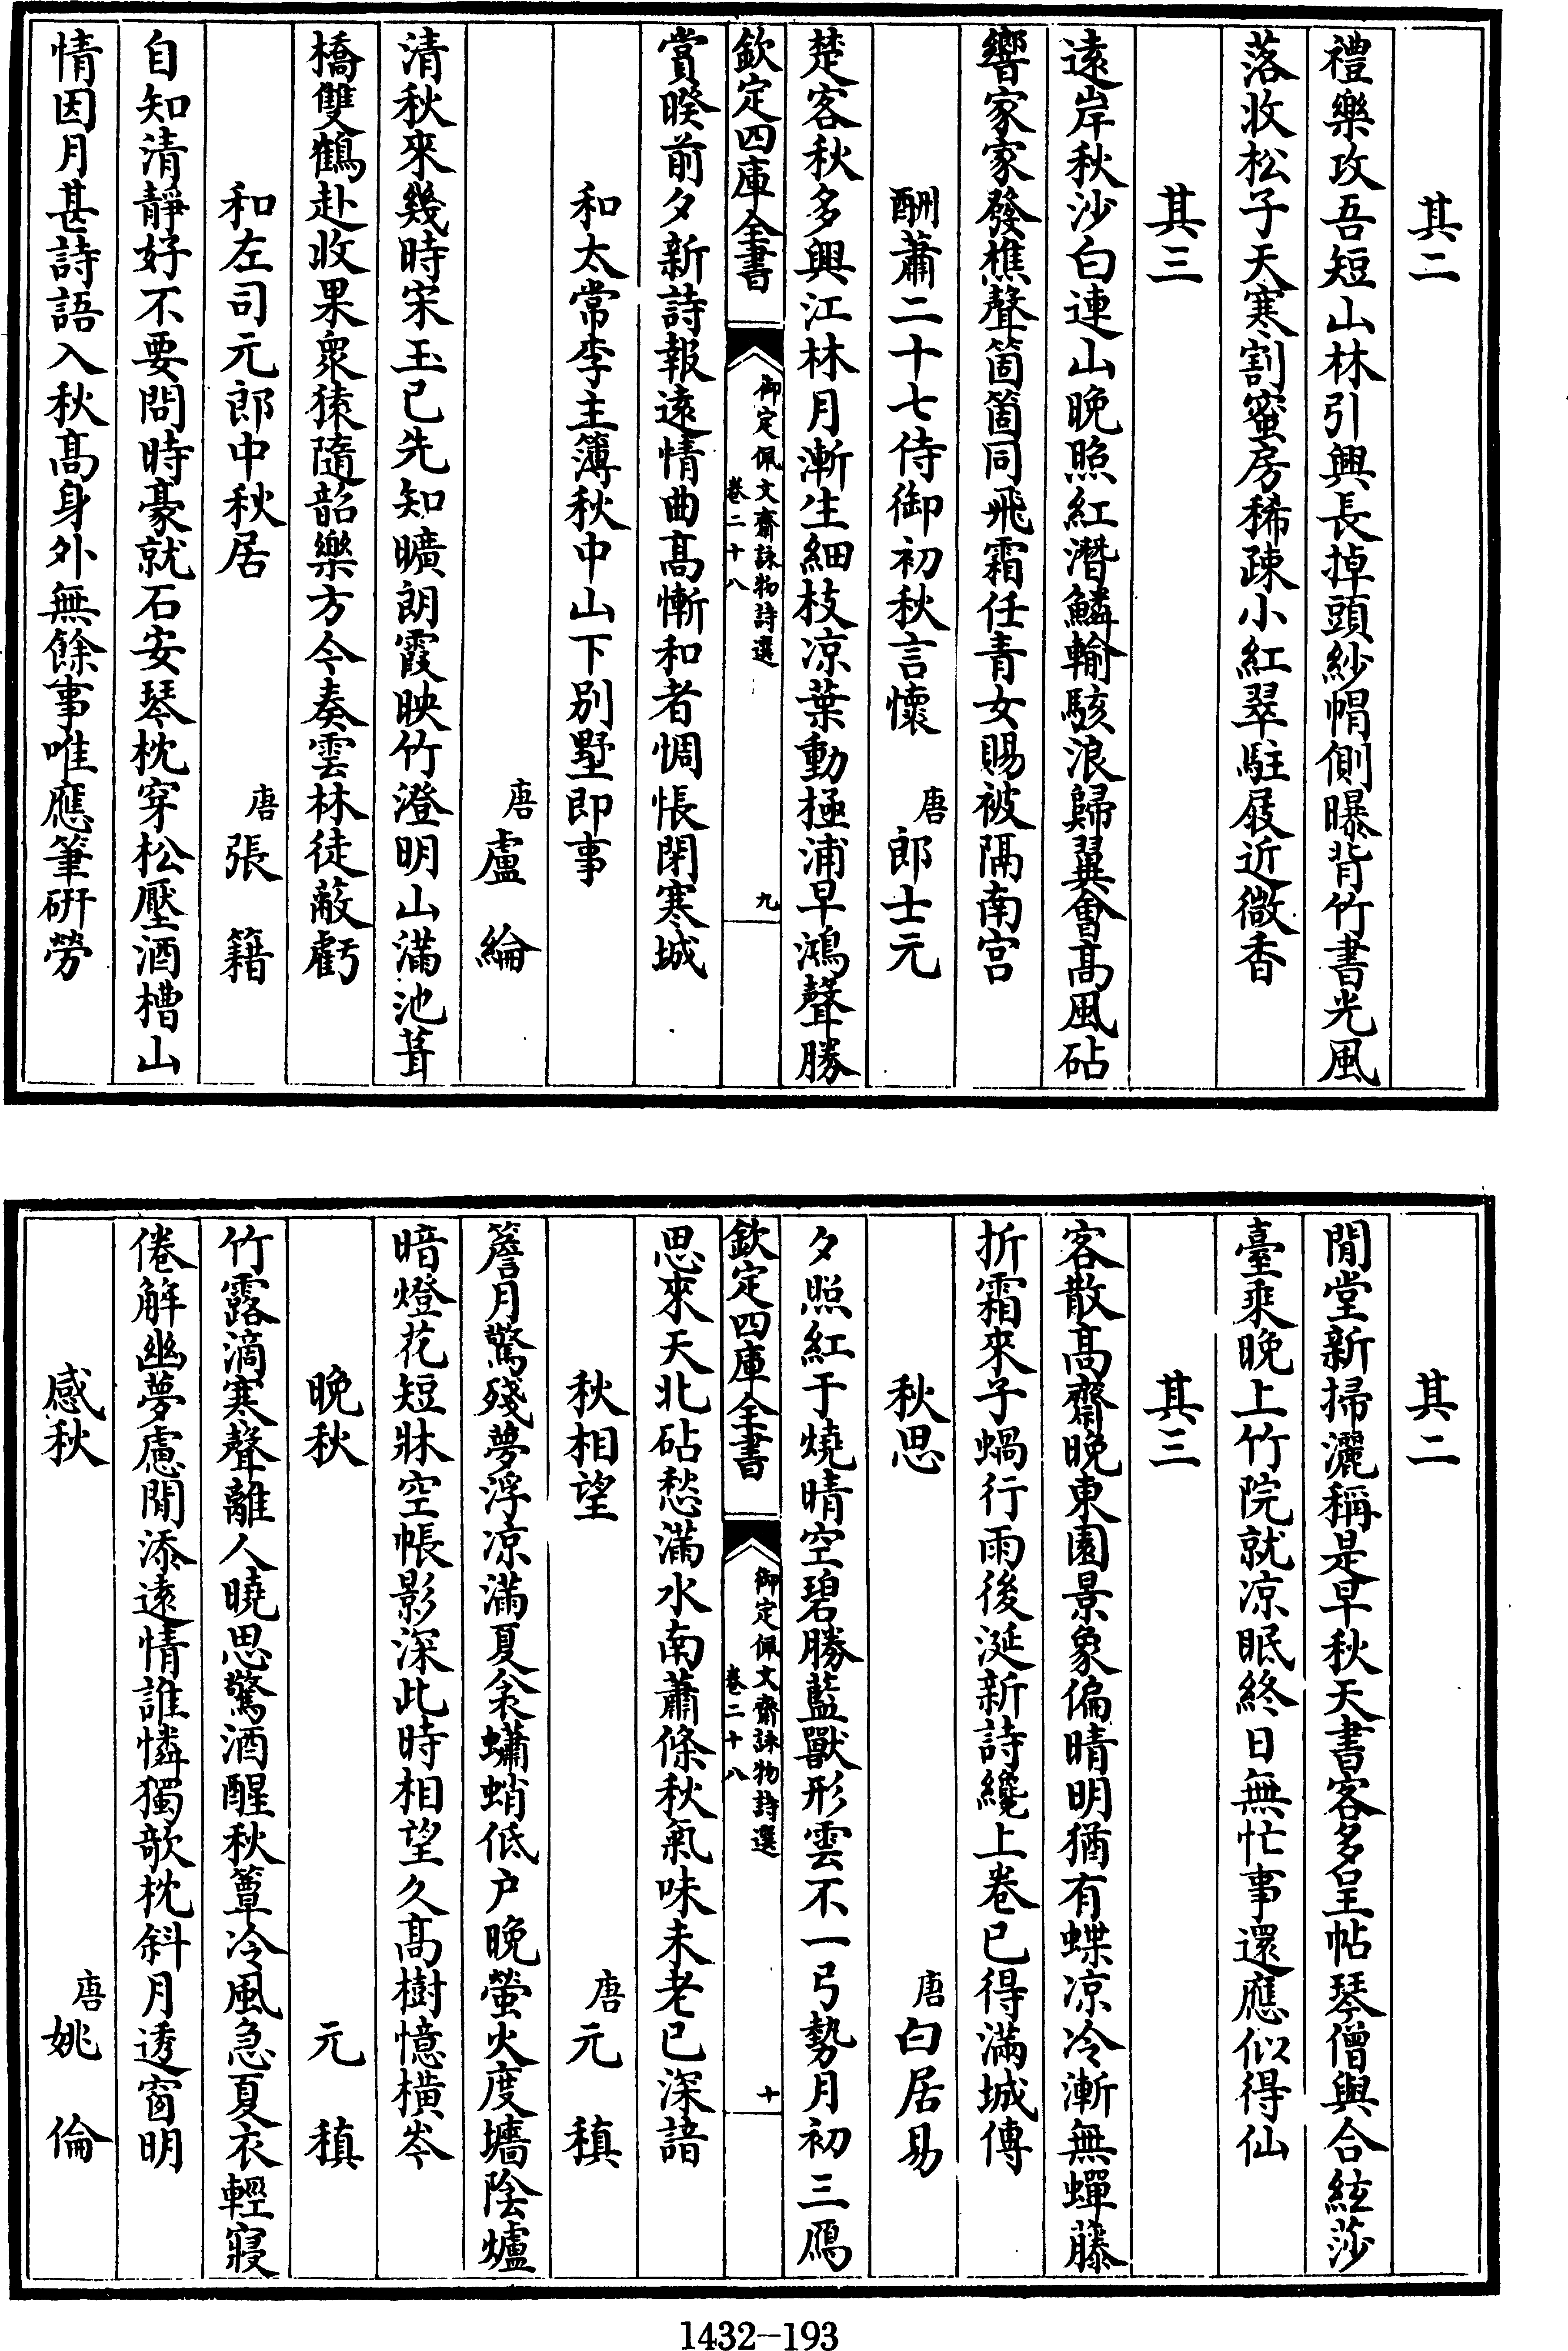 其二
禮樂攻吾短山林引興長掉頭紗㡌側曝背竹書光風
落收松子天寒割蜜房稀疎小紅翠駐屐近微香
其三
遠岸秋沙白連山晚照紅潛鱗輸駭浪歸翼會髙風砧
響家家發樵聲箇箇同飛霜任青女賜被隔南宫
酬蕭二十七侍御初秋言懷 唐 郎士元
楚客秋多興江林月漸生細枝凉葉動極浦早鴻聲勝
欽定四庫全書 御定佩文齋詠物詩選 卷二十八 九
賞暌前夕新詩報遠情曲髙慚和者惆悵閉寒城
和太常李主簿秋中山下别墅即事
唐 盧綸
清秋來幾時宋玉已先知曠朗霞映竹澄明山滿池葺
橋雙鶴赴收果衆猿隨韶樂方今奏雲林徒蔽虧
和左司元郎中秋居 唐 張籍
自知清靜好不要問時豪就石安琴枕穿松壓酒槽山
情因月甚詩語入秋髙身外無餘事唯應筆研勞
其二
閒堂新掃灑稱是早秋天書客多呈帖琴僧與合絃莎
臺乘晚上竹院就凉眠終日無忙事還應似得仙
其三
客散髙齋晚東園景象偏晴明猶有蝶凉冷漸無蟬藤
折霜來子蝸行雨後涎新詩纔上卷已得滿城傳
秋思 唐 白居易
夕照紅于燒晴空碧勝藍獸形雲不一弓勢月初三鴈
欽定四庫全書 御定佩文齋詠物詩選 卷二十八 十
思來天北砧愁滿水南蕭條秋氣味未老已深諳
秋相望 唐 元稹
簷月驚殘夢浮凉滿夏衾蠨蛸低户晚螢火度墻陰爐
暗燈花短牀空帳影深此時相望久髙樹憶橫岑
晚秋 元稹
竹露滴寒聲離人曉思驚酒醒秋簟冷風急夏衣輕寢
倦解幽夢慮閒添遠情誰憐獨欹枕斜月透窗明
感秋 唐 姚倫
1432-193